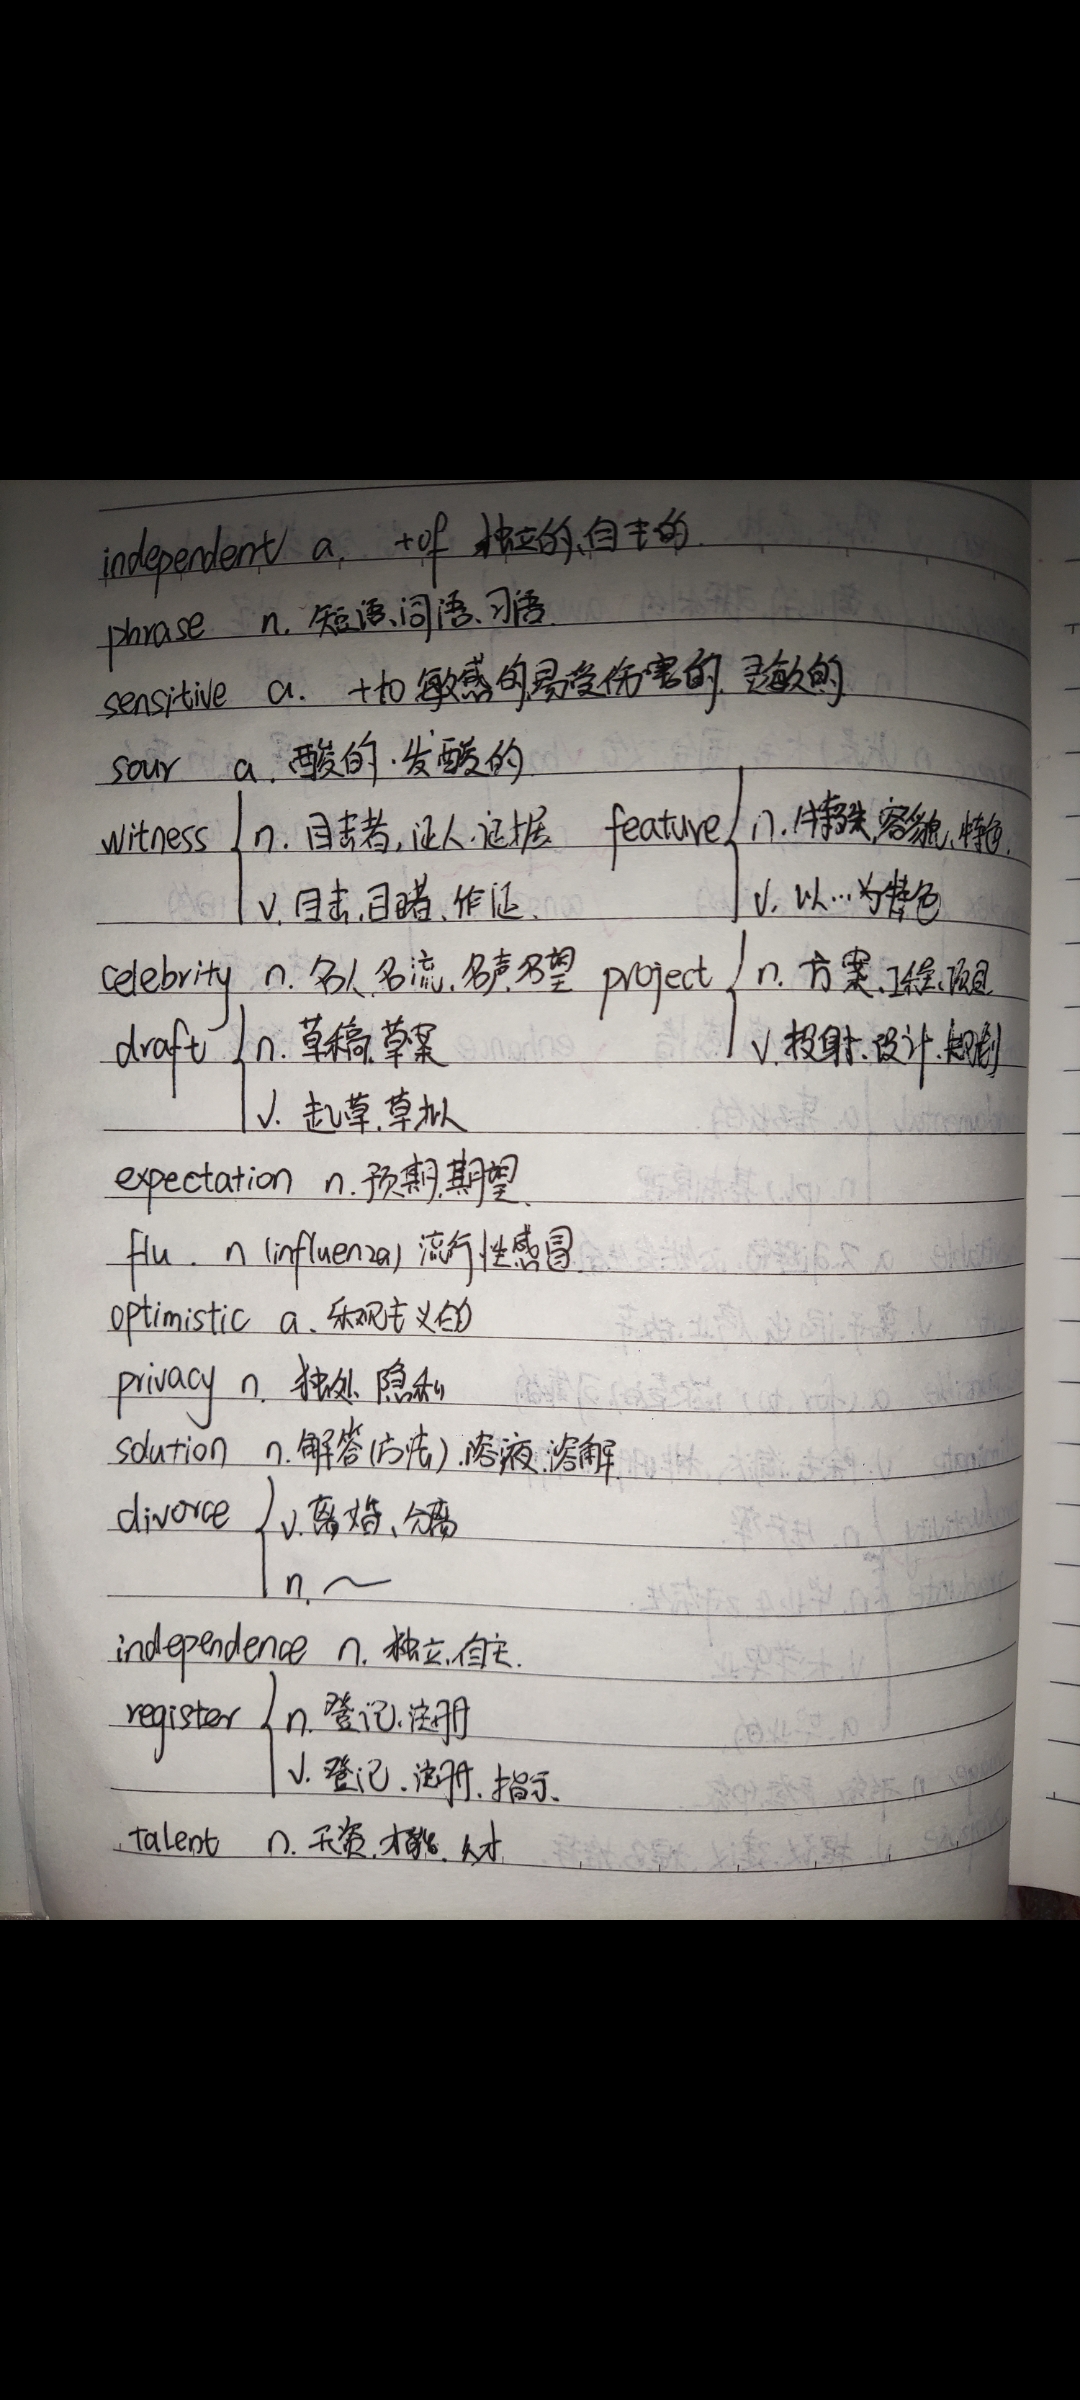 independent a. +of 独立的、自主的
phrase n. 短语、词语、习语
sensitive a. +to 敏感的、易受伤害的、灵敏的
sour a. 酸的.发酸的
witness n. 目击者,证人.证据 feature n. 特殊,容貌,特色.
v. 目击.目睹、作证. v. 以…为特色
celebrity n. 名人.名流.名声.名望 project n. 方案、工程、项目
draft n. 草稿.草案 v. 投射、设计、规划
v. 起草.草拟
expectation n. 预期.期望.
flu . n (influenza) 流行性感冒
optimistic a. 乐观主义的
privacy n. 独处、隐私
solution n. 解答(方法).溶液.溶解.
divorce v. 离婚、分离
n. ～
independence n. 独立.自主.
register n. 登记、注册
v. 登记、注册、指示、
talent n. 天资.才能.人才